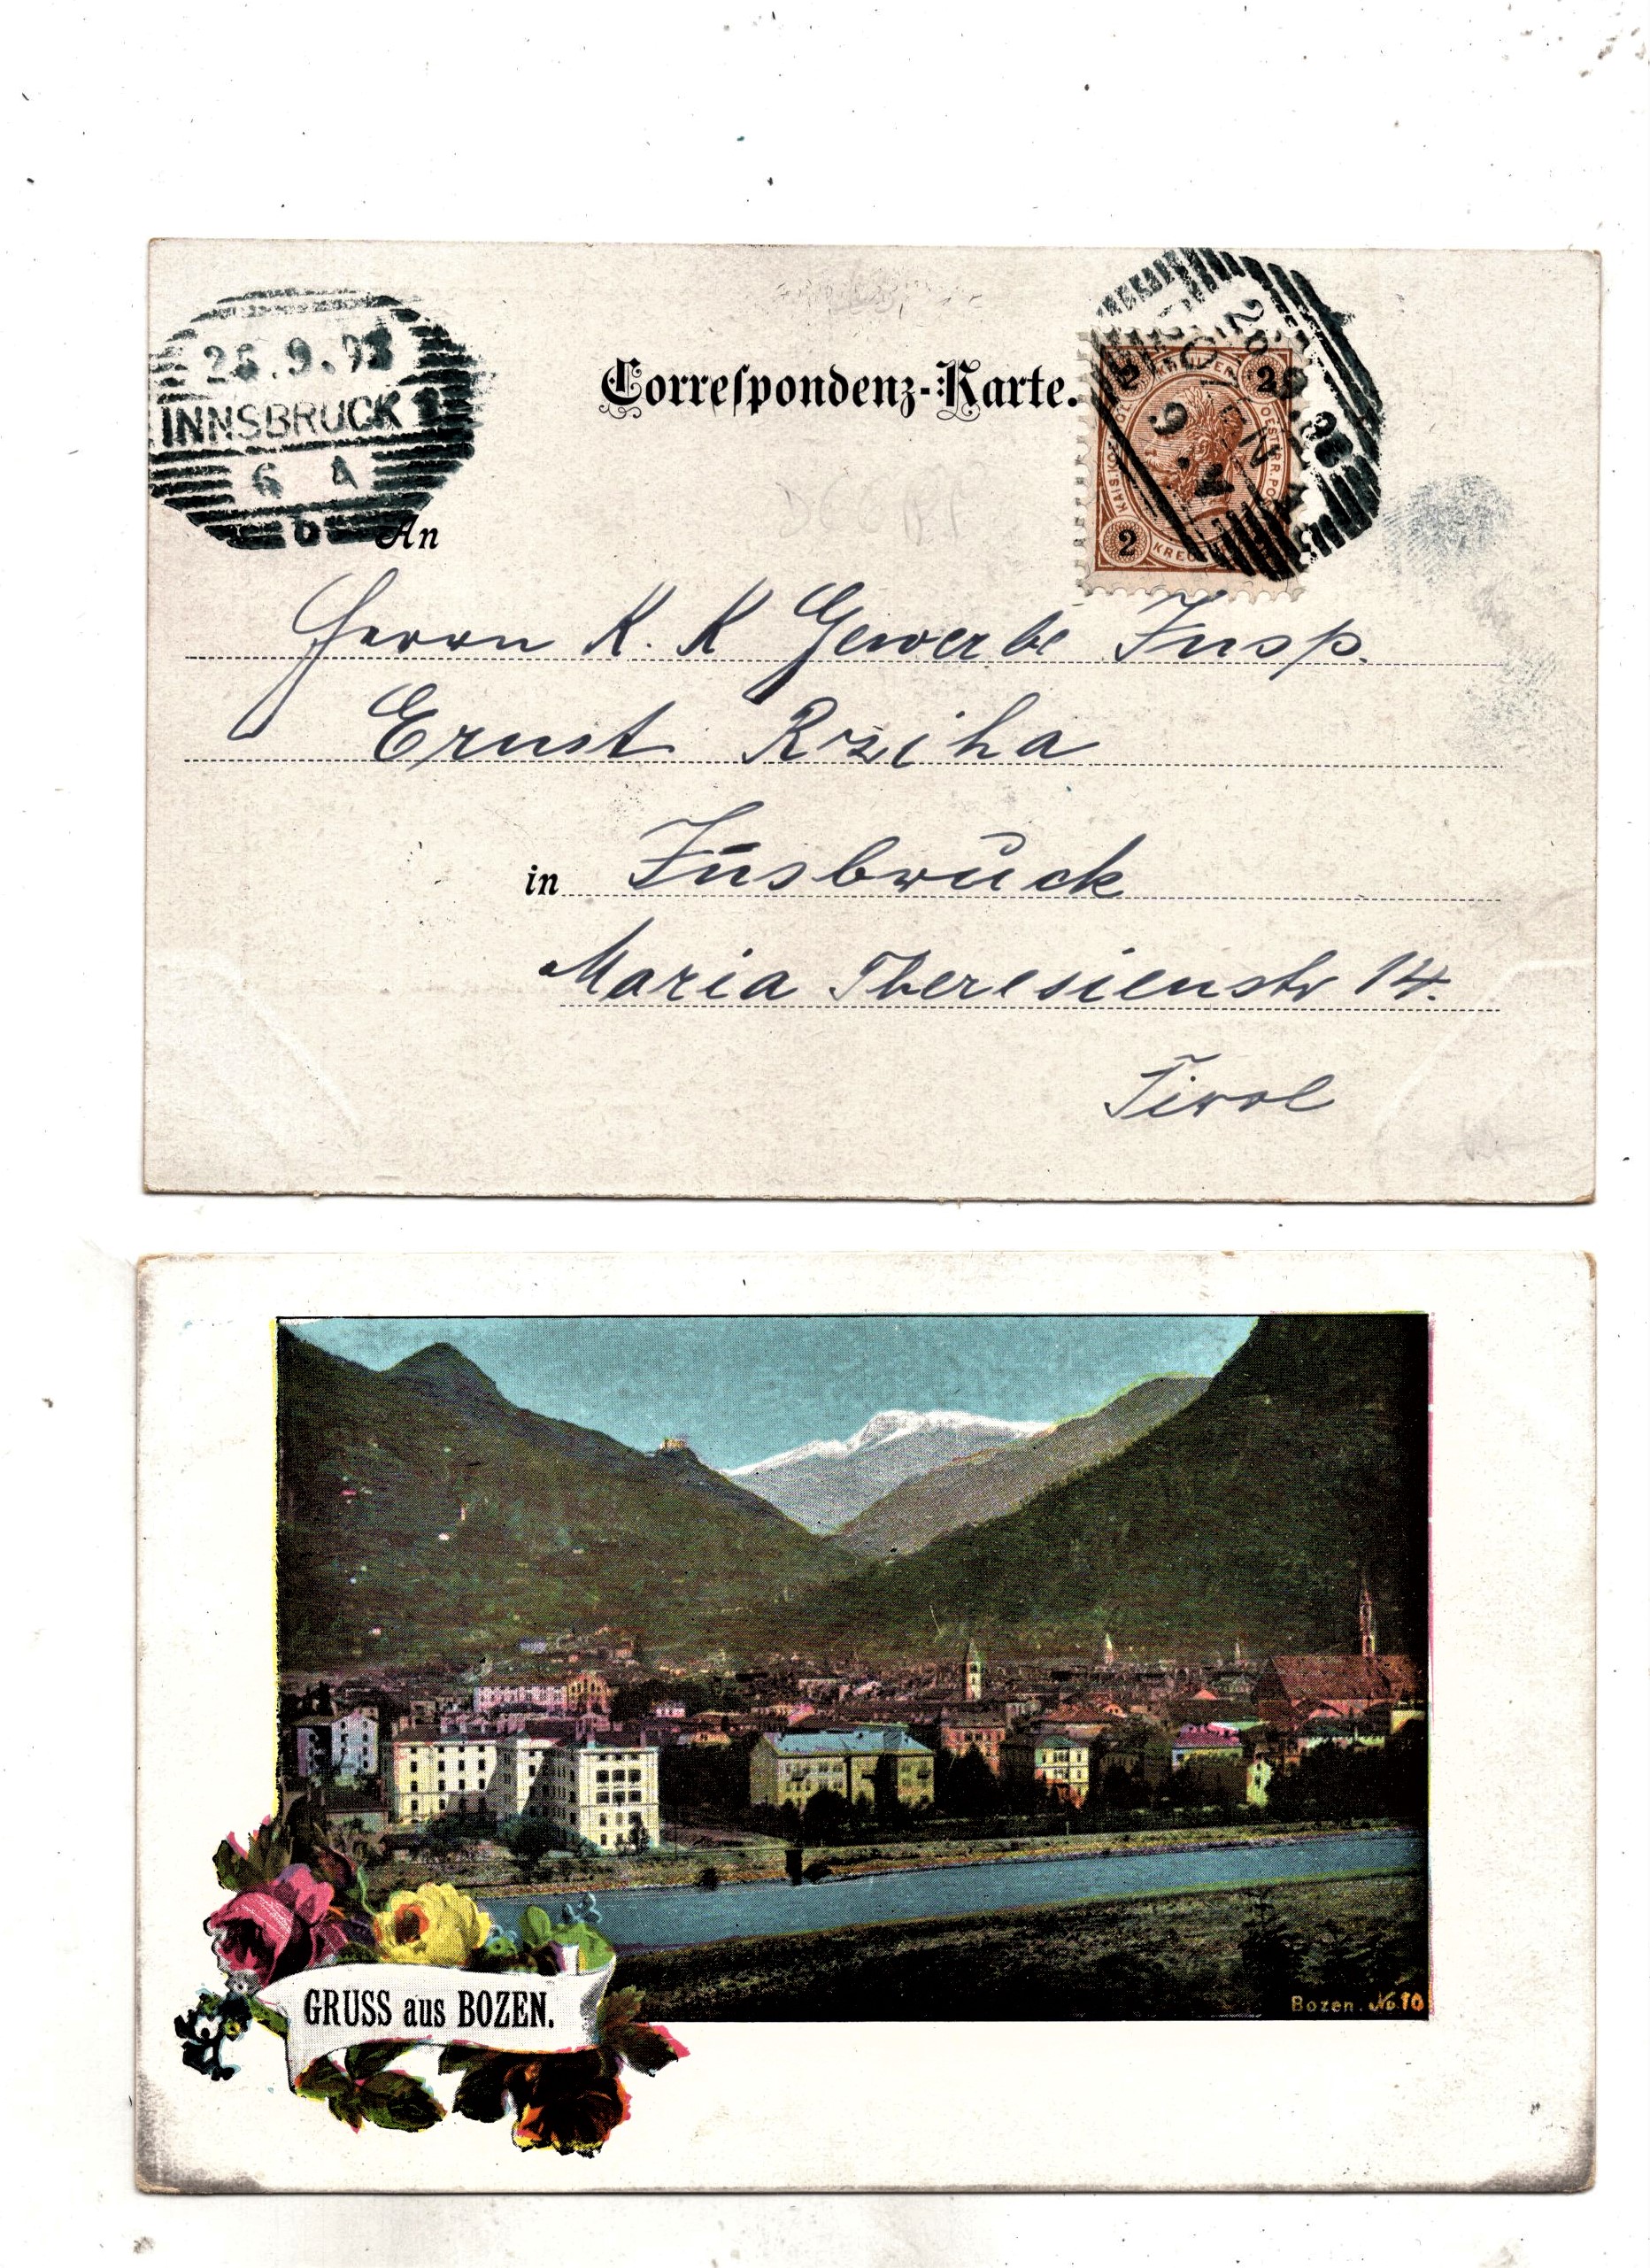 25.9.98
INNSBRUCK 1
6 A
b
Correspondenz-Karte.
2 2
KAIS. KOE
OESTERR. POST
KREU
2
BOZEN
An
Herrn K. K Gewerbe Insp.
Ernst Rziha
in Insbrück
Maria Theresienstr 14.
Tirol
GRUSS aus BOZEN.
Bozen. No. 10